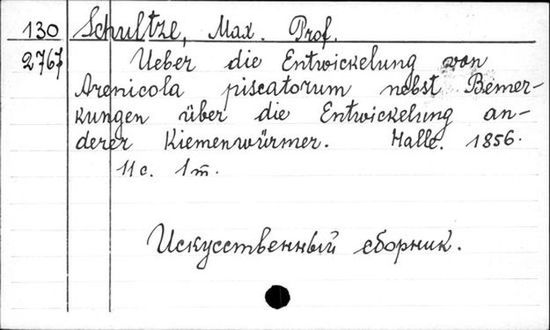 130 Schultze, Max. Prof.
2767 Ueber die Entwickelung von
Arenicola piscatorum nebst Bemer-
kungen über die Entwickelung an-
derer Kiemenwürmer. Halle. 1856.
11 c. 1 т.
Искусственный сборник.